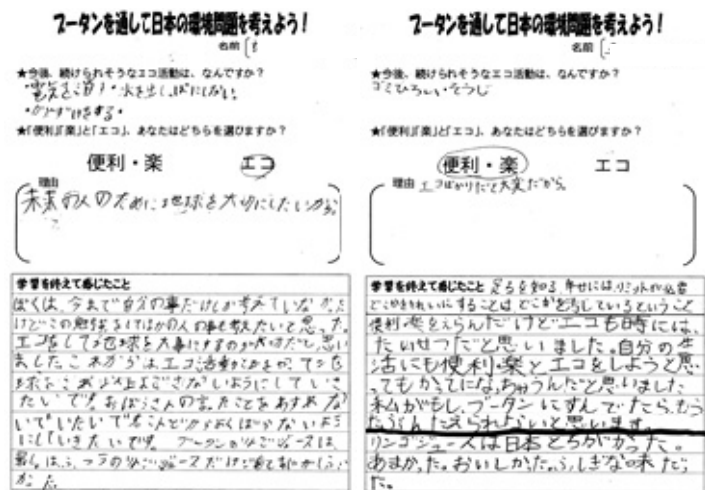 ブータンを通して日本の環境問題を考えよう!
名前
★今後、続けられそうなエコ活動は、なんですか?
・電気を消す・水を出しっぱにしない
・かたずけをする・
★「便利」「楽」と「エコ」、あなたはどちらを選びますか?
便利・楽 エコ
理由
未来の人のために地球を大切にしたいから。
学習を終えて感じたこと
ぼくは、今まで自分の事だけしか考えていなかった
けどこの勉強をしてほかの人の事も考えたいと思った。
エコをして地球を大事にするのが大切だと思い
ました。これからは、エコ活動
地球をこれ以上よごさないようにしていき
たいです。おぼうさんの言ったことをあすれな
いでいたいです。
にしていきたいです。ブータンのりんごジュースは、
ふつうのりんごジュースだけど
かった
ブータンを通して日本の環境問題を考えよう!
名前
★今後、続けられそうなエコ活動は、なんですか?
ゴミひろい・そうじ
★「便利」「楽」と「エコ」、あなたはどちらを選びますか?
便利・楽 エコ
理由 エコばかりだと大変だから。
学習を終えて感じたこと 足るを知る 幸せにはリミットが必要
どこかをきれいにすることはどこかをよごしているということ
便利・楽をえらんだけどエコも時には、
たいせつだと思いました。自分の生
活にも便利・楽とエコをしようと思
ってもかってになっちゃうんだと思いました
私がもし、ブータンにすんでいたら、もう
たぶんたえられないと思います。
リンゴジュースは日本とちがかった。
あまかった。おいしかった。ふしぎな味だっ
た。